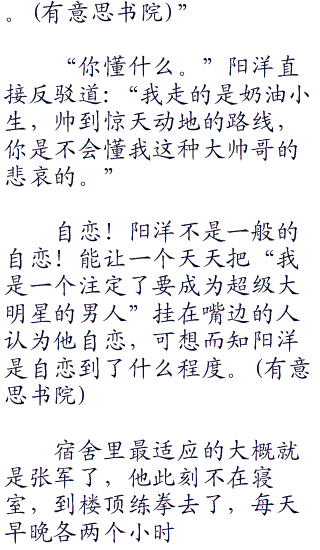 。(有意思书院)”
“你懂什么。”阳洋直
接反驳道：“我走的是奶油小
生，帅到惊天动地的路线，
你是不会懂我这种大帅哥的
悲哀的。”
自恋！阳洋不是一般的
自恋！能让一个天天把“我
是一个注定了要成为超级大
明星的男人”挂在嘴边的人
认为他自恋，可想而知阳洋
是自恋到了什么程度。(有意
思书院)
宿舍里最适应的大概就
是张军了，他此刻不在寝
室，到楼顶练拳去了，每天
早晚各两个小时